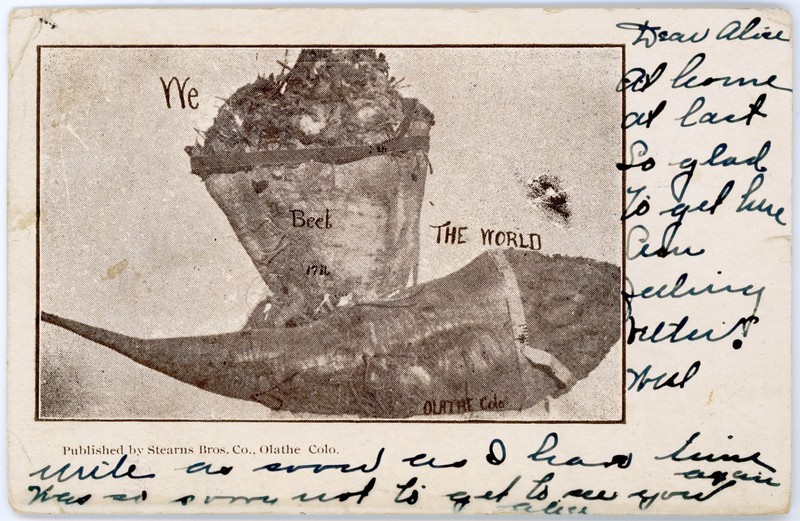 We
Beet
THE WORLD
OLATHE Colo
Published by Stearns Bros. Co., Olathe Colo.
Dear Alice
At home
at last
So glad
to get here
Am
feeling
better.
Will
write as soon as I have time
again
Was so sorry not to get to see you